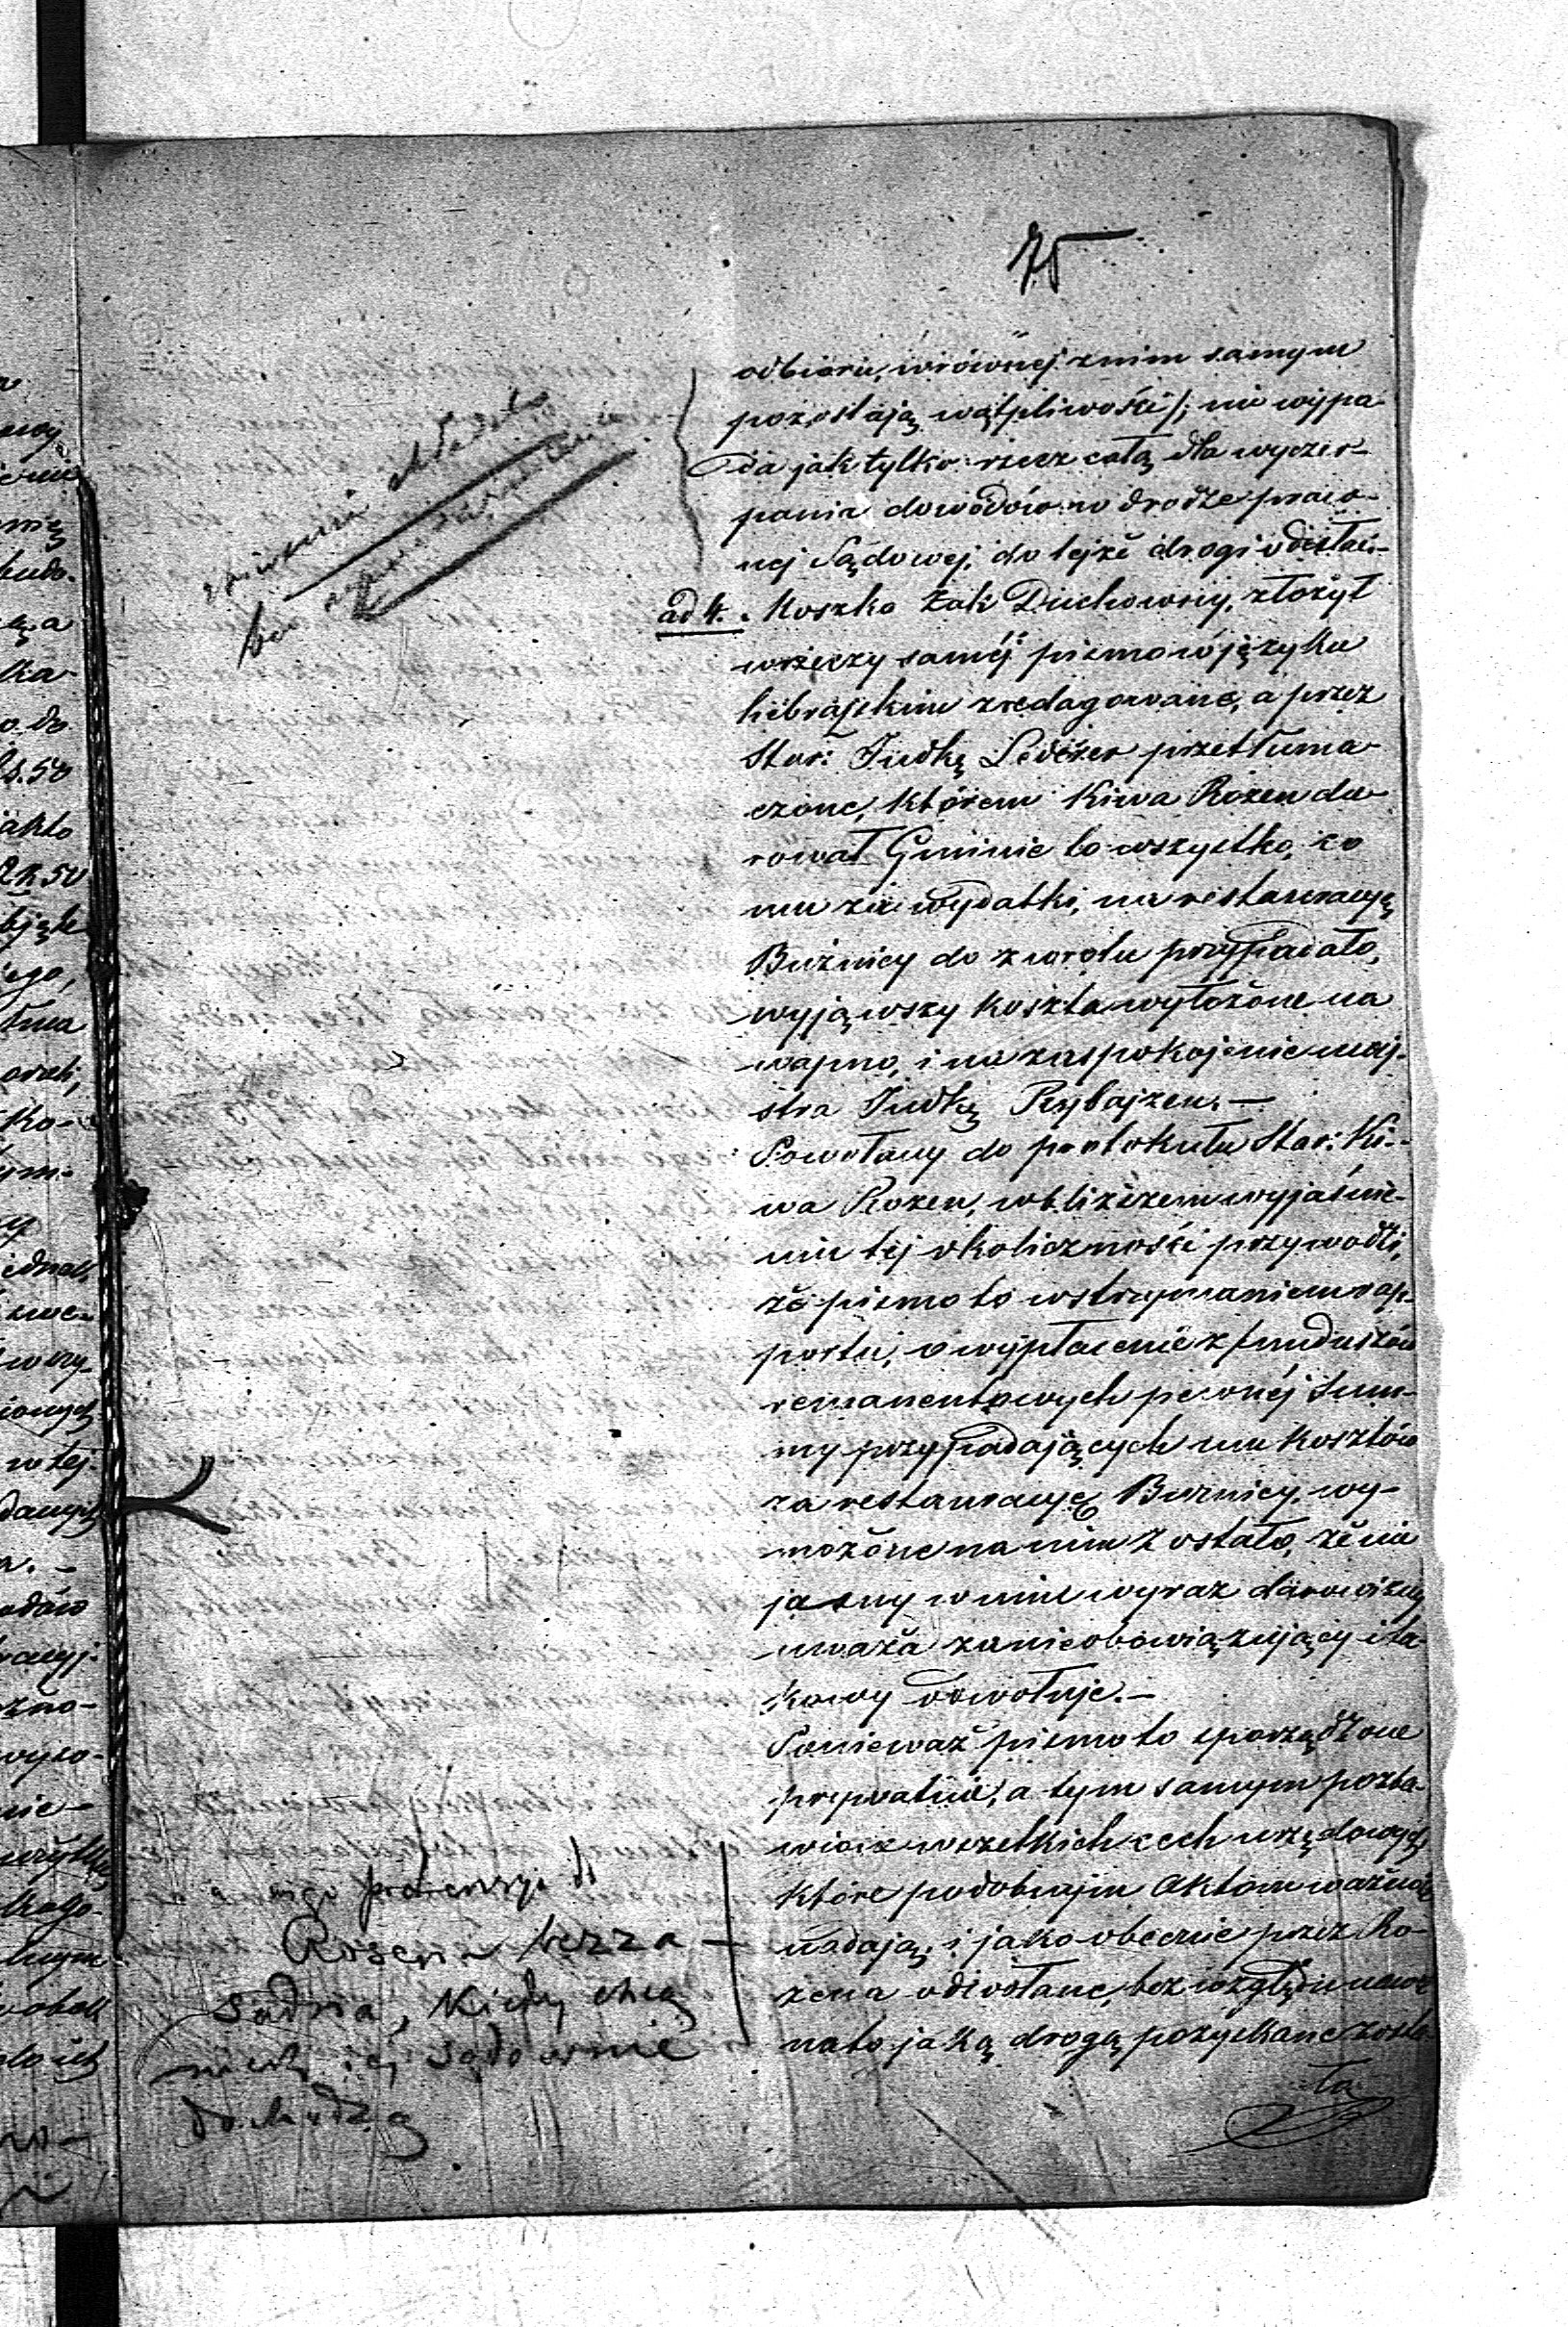 75
odbioru, wrównej znim samym
pozostają wątpliwości/; nie wypa
da jak tylko rzecz całą dla wyczer-
pania dowodów w drodze praw-
nej Sądowej, do tejże drogi odesłać.-
ad 4. Moszko Żak Duchowny, złożył
wrzeczy saméj pismo wjęzyku
hebrajskim zredagowane, a przez
Star: Judkę Lederer przetłuma
czone, którem Kiwa Rozen da
rował Gminie to wszystko, co
mu za wydatki, na restauracyą
Bużnicy do zwrotu przypadało,
wyjąwszy koszta wyłożone na
wapno, i na zaspokojenie maj-
stra Judkę Rybajzen. —
Powołany do protokułu Star: Ki-
wa Rozen, wbliższem wyjaśnie-
niu tej okoliczności przywodzi,
że pismo to wstrzymaniem rap-
portu, o wypłacenie z funduszów
remanentowych pewnéj Sum-
my przypadających mu kosztów
za restauracyę Bużnicy, wy-
możone na nim zostało, że nie
jasny w nim wyraz darowizny
uważa za nieobowiązujący i ta-
kowy odwołuje.—
Ponieważ pismo to sporządzone
prywatnie, a tym samym pozba-
wione wszelkich cech urzędowych
które podobnym Aktom ważność
nadają, i jako obecnie przez Ro-
zena odwołane, bez względu nawet
na to jaką drogą pozyskane zosta
ło
pretensyja
Rosena bezza-
sadna, Kiedy chcą
niech jej sądownie
dochodzą